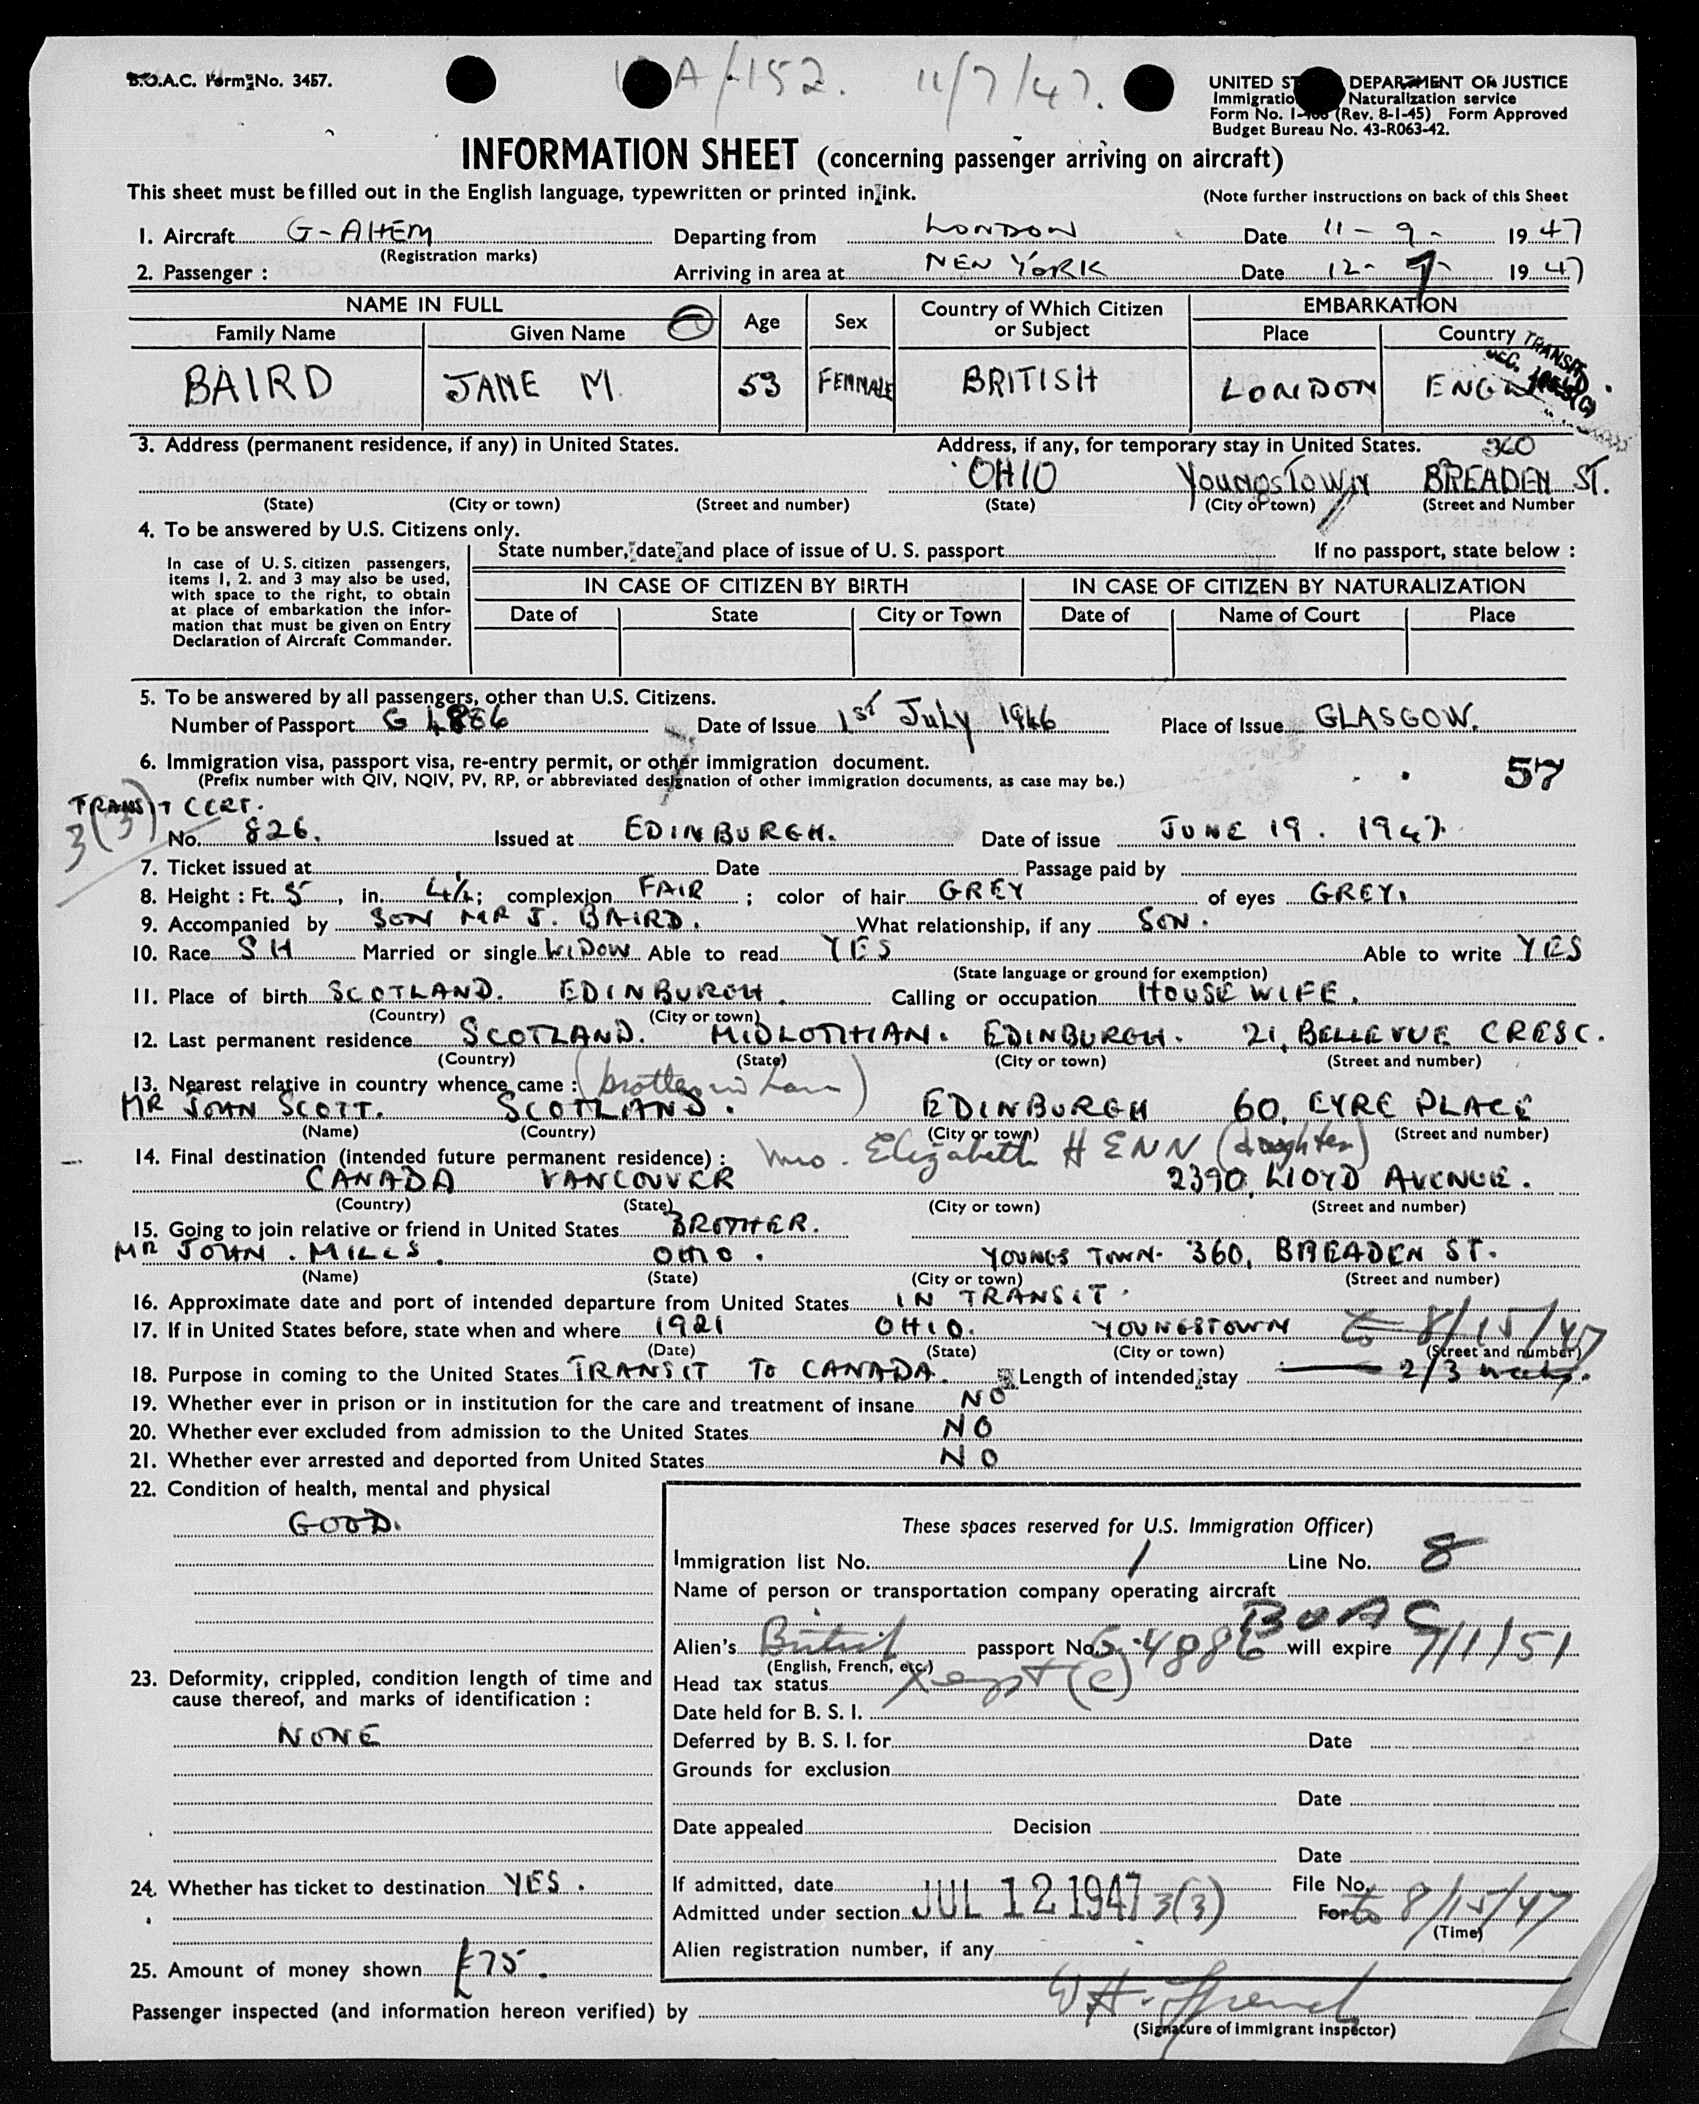 B.O.A.C. Form No. 3457.
A/-152. 11/7/47.
UNITED ST DEPARTMENT OF JUSTICE
Immigratio Naturalization service
Form No. I- (Rev. 8-1-45) Form Approved
Budget Bureau No. 43-R063-42.
INFORMATION SHEET (concerning passenger arriving on aircraft)
This sheet must be filled out in the English language, typewritten or printed in ink.
(Note further instructions on back of this Sheet
1. Aircraft G-AHEM Departing from LONDON Date 11-9- 1947
(Registration marks)
2. Passenger : Arriving in area at NEW YORK Date 12-7- 1947
NAME IN FULL Age Sex Country of Which Citizen or Subject EMBARKATION
Family Name Given Name Place Country
TRANSIT
BAIRD JANE M. 53 FEMMALE BRITISH LONDON ENG
3. Address (permanent residence, if any) in United States. Address, if any, for temporary stay in United States. 360
OHIO YOUNGSTOWN BREADEN ST.
(State) (City or town) (Street and number) (State) (City or town) (Street and Number
4. To be answered by U.S. Citizens only.
In case of U.S. citizen passengers, items 1, 2. and 3 may also be used, with space to the right, to obtain at place of embarkation the infor-mation that must be given on Entry Declaration of Aircraft Commander.
State number, date and place of issue of U. S. passport If no passport, state below :
IN CASE OF CITIZEN BY BIRTH IN CASE OF CITIZEN BY NATURALIZATION
Date of State City or Town Date of Name of Court Place
5. To be answered by all passengers, other than U.S. Citizens.
Number of Passport G 4886 Date of Issue 1st July 1946 Place of Issue GLASGOW.
6. Immigration visa, passport visa, re-entry permit, or other immigration document.
(Prefix number with QIV, NQIV, PV, RP, or abbreviated designation of other immigration documents, as case may be.) 57
TRANSIT CERT.
3(3)
No. 826. Issued at EDINBURGH. Date of issue JUNE 19. 1947.
7. Ticket issued at Date Passage paid by
8. Height : Ft. 5, in. 4½; complexion FAIR ; color of hair GREY of eyes GREY.
9. Accompanied by SON MR J. BAIRD. What relationship, if any SON.
10. Race SH Married or single WIDOW Able to read YES Able to write YES
(State language or ground for exemption)
11. Place of birth SCOTLAND. EDINBURGH. Calling or occupation HOUSEWIFE.
(Country) (City or town)
12. Last permanent residence SCOTLAND. MIDLOTHIAN. EDINBURGH. 21, BELLEVUE CRESC.
(Country) (State) (City or town) (Street and number)
13. Nearest relative in country whence came : (brother in law)
MR JOHN SCOTT. SCOTLAND. EDINBURGH 60, EYRE PLACE
(Name) (Country) (City or town) (Street and number)
14. Final destination (intended future permanent residence) : Mrs. Elizabeth HENN (daughter)
CANADA VANCOUVER 2390, LLOYD AVENUE.
(Country) (State) (City or town) (Street and number)
15. Going to join relative or friend in United States BROTHER.
MR JOHN. MILLS. OHIO. YOUNGS TOWN. 360, BREADEN ST.
(Name) (State) (City or town) (Street and number)
16. Approximate date and port of intended departure from United States IN TRANSIT.
17. If in United States before, state when and where 1921 OHIO. YOUNGSTOWN to 8/15/47
(Date) (State) (City or town) (Street and number)
18. Purpose in coming to the United States TRANSIT TO CANADA. Length of intended stay 2/3 weeks.
19. Whether ever in prison or in institution for the care and treatment of insane NO
20. Whether ever excluded from admission to the United States NO
21. Whether ever arrested and deported from United States NO
22. Condition of health, mental and physical
GOOD.
These spaces reserved for U.S. Immigration Officer)
Immigration list No. 1 Line No. 8
Name of person or transportation company operating aircraft
BOAC
Alien's British passport No. G-4886 will expire 7/1/51
(English, French, etc.)
Head tax status Xempt (C)
Date held for B. S. I.
23. Deformity, crippled, condition length of time and cause thereof, and marks of identification :
NONE
Deferred by B. S. I. for Date
Grounds for exclusion
Date
Date appealed Decision
Date
24. Whether has ticket to destination YES.
If admitted, date JUL 12 1947 File No.
Admitted under section 3(3) For to 8/15/47
(Time)
Alien registration number, if any
25. Amount of money shown £75.
Passenger inspected (and information hereon verified) by W H. French
(Signature of immigrant inspector)